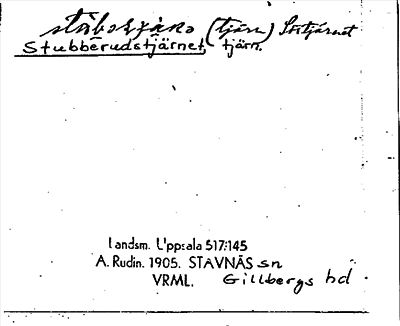 (tjärn)
Stubberudstjärnet, tjärn.
Landsm. Uppsala 517:145
A. Rudin. 1905. STAVNÄS sn
VRML. Gillbergs hd.